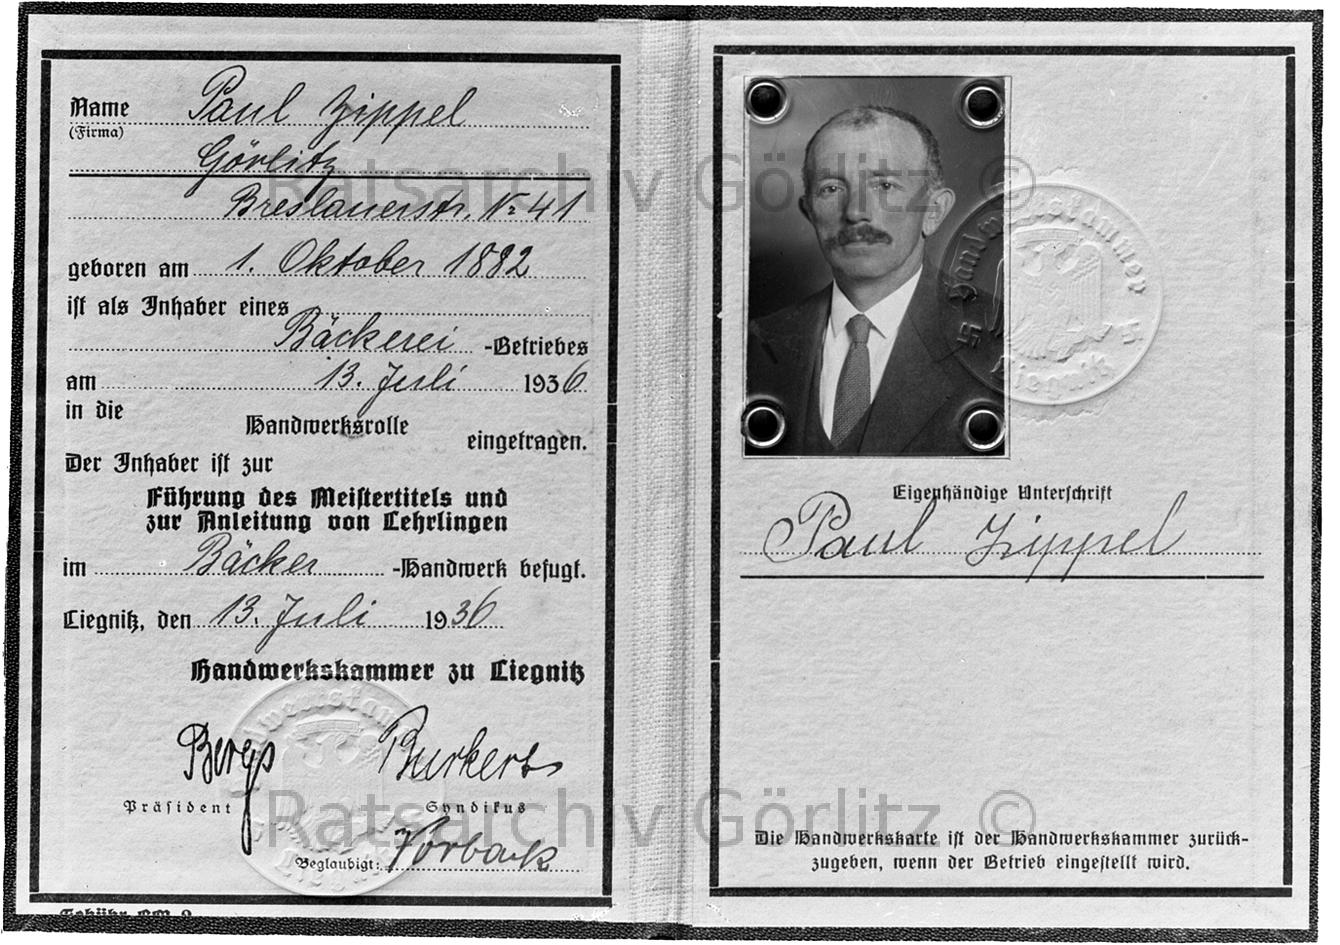 Name Paul Zippel
(Firma)
Görlitz
Breslauerstr. Nr 41
geboren am 1. Oktober 1882
ist als Inhaber eines
Bäckerei -Betriebes
am 13. Juli 1936
in die
Handwerksrolle
eingetragen.
Der Inhaber ist zur
Führung des Meistertitels und
zur Anleitung von Lehrlingen
im Bäcker -Handwerk befugt.
Liegnitz, den 13. Juli 1936
Handwerkskammer zu Liegnitz
Präsident Syndikus
Beglaubigt:
Handwerkskammer
Liegnitz
Eigenhändige Unterschrift
Paul Zippel
Die Handwerkskarte ist der Handwerkskammer zurück-
zugeben, wenn der Betrieb eingestellt wird.
Ratsarchiv Görlitz ©
Ratsarchiv Görlitz ©